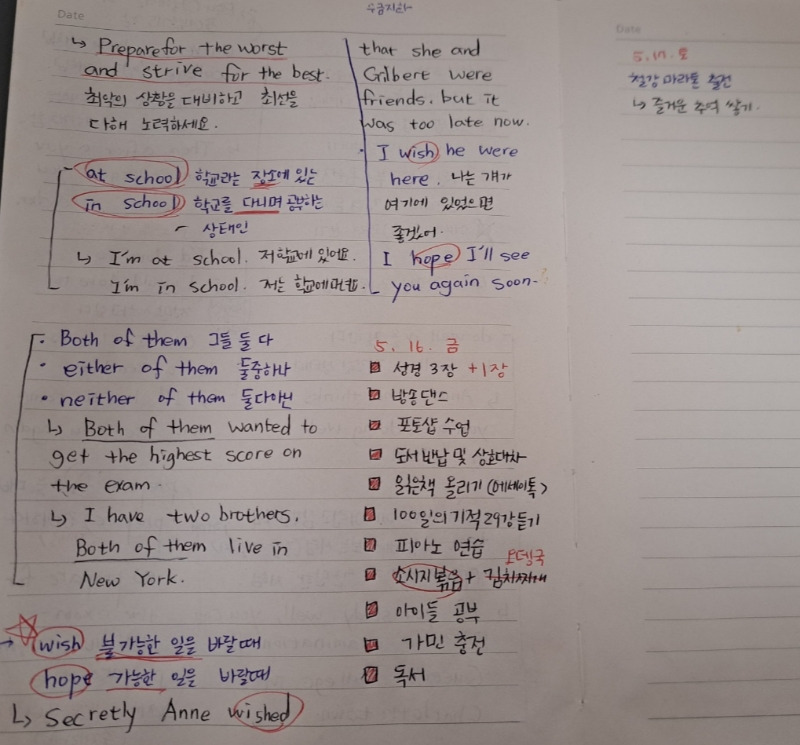 Date
↳ Prepare for the worst
and strive for the best.
최악의 상황을 대비하고 최선을
다해 노력하세요.
at school 학교라는 장소에 있는
in school 학교를 다니며 공부하는
상태인
↳ I'm at school. 저 학교에 있어요.
I'm in school. 저는 학교에
• Both of them 그들 둘 다
• either of them 둘중하나
• neither of them 둘다아닌
↳ Both of them wanted to
get the highest score on
the exam.
↳ I have two brothers.
Both of them live in
New York.
→ wish 불가능한 일을 바랄때
hope 가능한 일을 바랄때
↳ Secretly Anne wished
that she and
Gilbert were
friends. but it
was too late now.
• I wish he were
here. 나는 걔가
여기에 있었으면
좋겠어.
I hope I'll see
you again soon.
5. 16. 금
성경 3장 +1장
방송댄스
포토샵 수업
도서반납 및 상호대차
읽은책 올리기 (에세이톡)
100일의 기적 29강 듣기
피아노 연습
소시지볶음 + 김치찌개
아이들 공부
가민 충전
독서
Date
5. 17. 토
철강 마라톤 출전
↳ 즐거운 추억 쌓기.